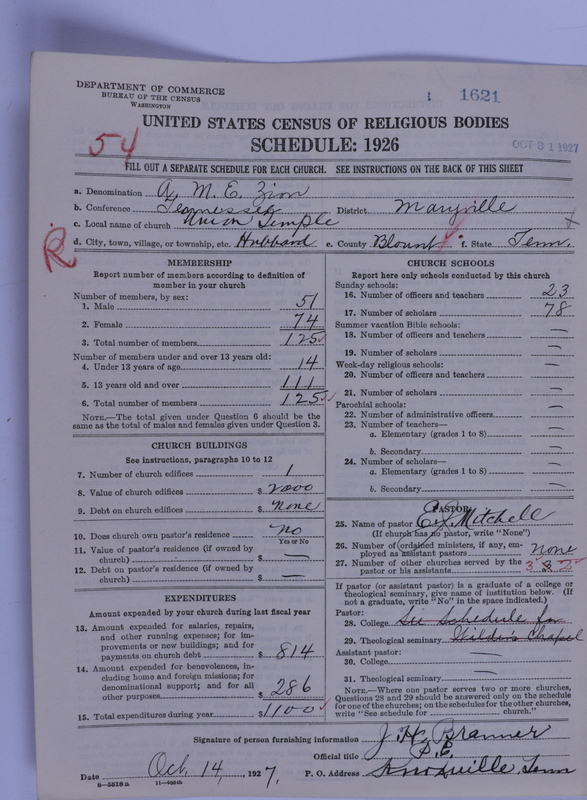 DEPARTMENT OF COMMERCE
BUREAU OF THE CENSUS
WASHINGTON
1621
UNITED STATES CENSUS OF RELIGIOUS BODIES
SCHEDULE: 1926
OCT 31 1927
54
FILL OUT A SEPARATE SCHEDULE FOR EACH CHURCH. SEE INSTRUCTIONS ON THE BACK OF THIS SHEET
a. Denomination A. M. E. Zion
b. Conference Tennessee District Maryville
c. Local name of church Union Temple
d. City, town, village, or township, etc. Hubbard e. County Blount f. State Tenn.
R
MEMBERSHIP
Report number of members according to definition of
member in your church
Number of members, by sex:
1. Male 51
2. Female 74
3. Total number of members 125
Number of members under and over 13 years old:
4. Under 13 years of age 14
5. 13 years old and over 111
6. Total number of members 125
NOTE.—The total given under Question 6 should be
same as the total of males and females given under Question 3.
CHURCH BUILDINGS
See instructions, paragraphs 10 to 12
7. Number of church edifices 1
8. Value of church edifices $ 2000
9. Debt on church edifices $ none
10. Does church own pastor's residence no
Yes or No
11. Value of pastor's residence (if owned by
church) $ —
12. Debt on pastor's residence (if owned by
church) $ —
EXPENDITURES
Amount expended by your church during last fiscal year
13. Amount expended for salaries, repairs,
and other running expenses; for im-
provements or new buildings; and for
payments on church debt $ 814
14. Amount expended for benevolences, in-
cluding home and foreign missions; for
denominational support; and for all
other purposes $ 286
15. Total expenditures during year $ 1100
CHURCH SCHOOLS
Report here only schools conducted by this church
Sunday schools:
16. Number of officers and teachers 23
17. Number of scholars 78
Summer vacation Bible schools:
18. Number of officers and teachers —
19. Number of scholars —
Week-day religious schools:
20. Number of officers and teachers —
21. Number of scholars —
Parochial schools:
22. Number of administrative officers —
23. Number of teachers—
a. Elementary (grades 1 to 8) —
b. Secondary —
24. Number of scholars—
a. Elementary (grades 1 to 8) —
b. Secondary —
PASTOR
25. Name of pastor Mitchell
(If church has no pastor, write "None")
26. Number of (ordained ministers, if any, em-
ployed as assistant pastors none
27. Number of other churches served by the
pastor or his assistants 3
If pastor (or assistant pastor) is a graduate of a college or
theological seminary, give name of institution below. (If
not a graduate, write "No" in the space indicated.)
Pastor:
28. College See Schedule for
29. Theological seminary Wilder's Chapel
Assistant pastor:
30. College —
31. Theological seminary —
NOTE.—Where one pastor serves two or more churches,
Questions 28 and 29 should be answered only on the schedule
for one of the churches; on the schedules for the other churches,
write "See schedule for church."
Signature of person furnishing information J. H. Branner
Official title P.E.
Date Oct. 14, 1927. P. O. Address Knoxville, Tenn